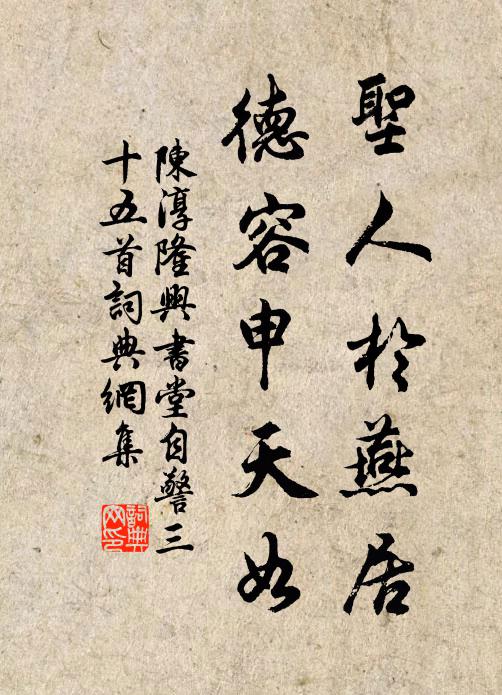 聖人於燕居
德容申天如
陳淳隆興書堂自警三
十五首詞典網集
詞典
网印